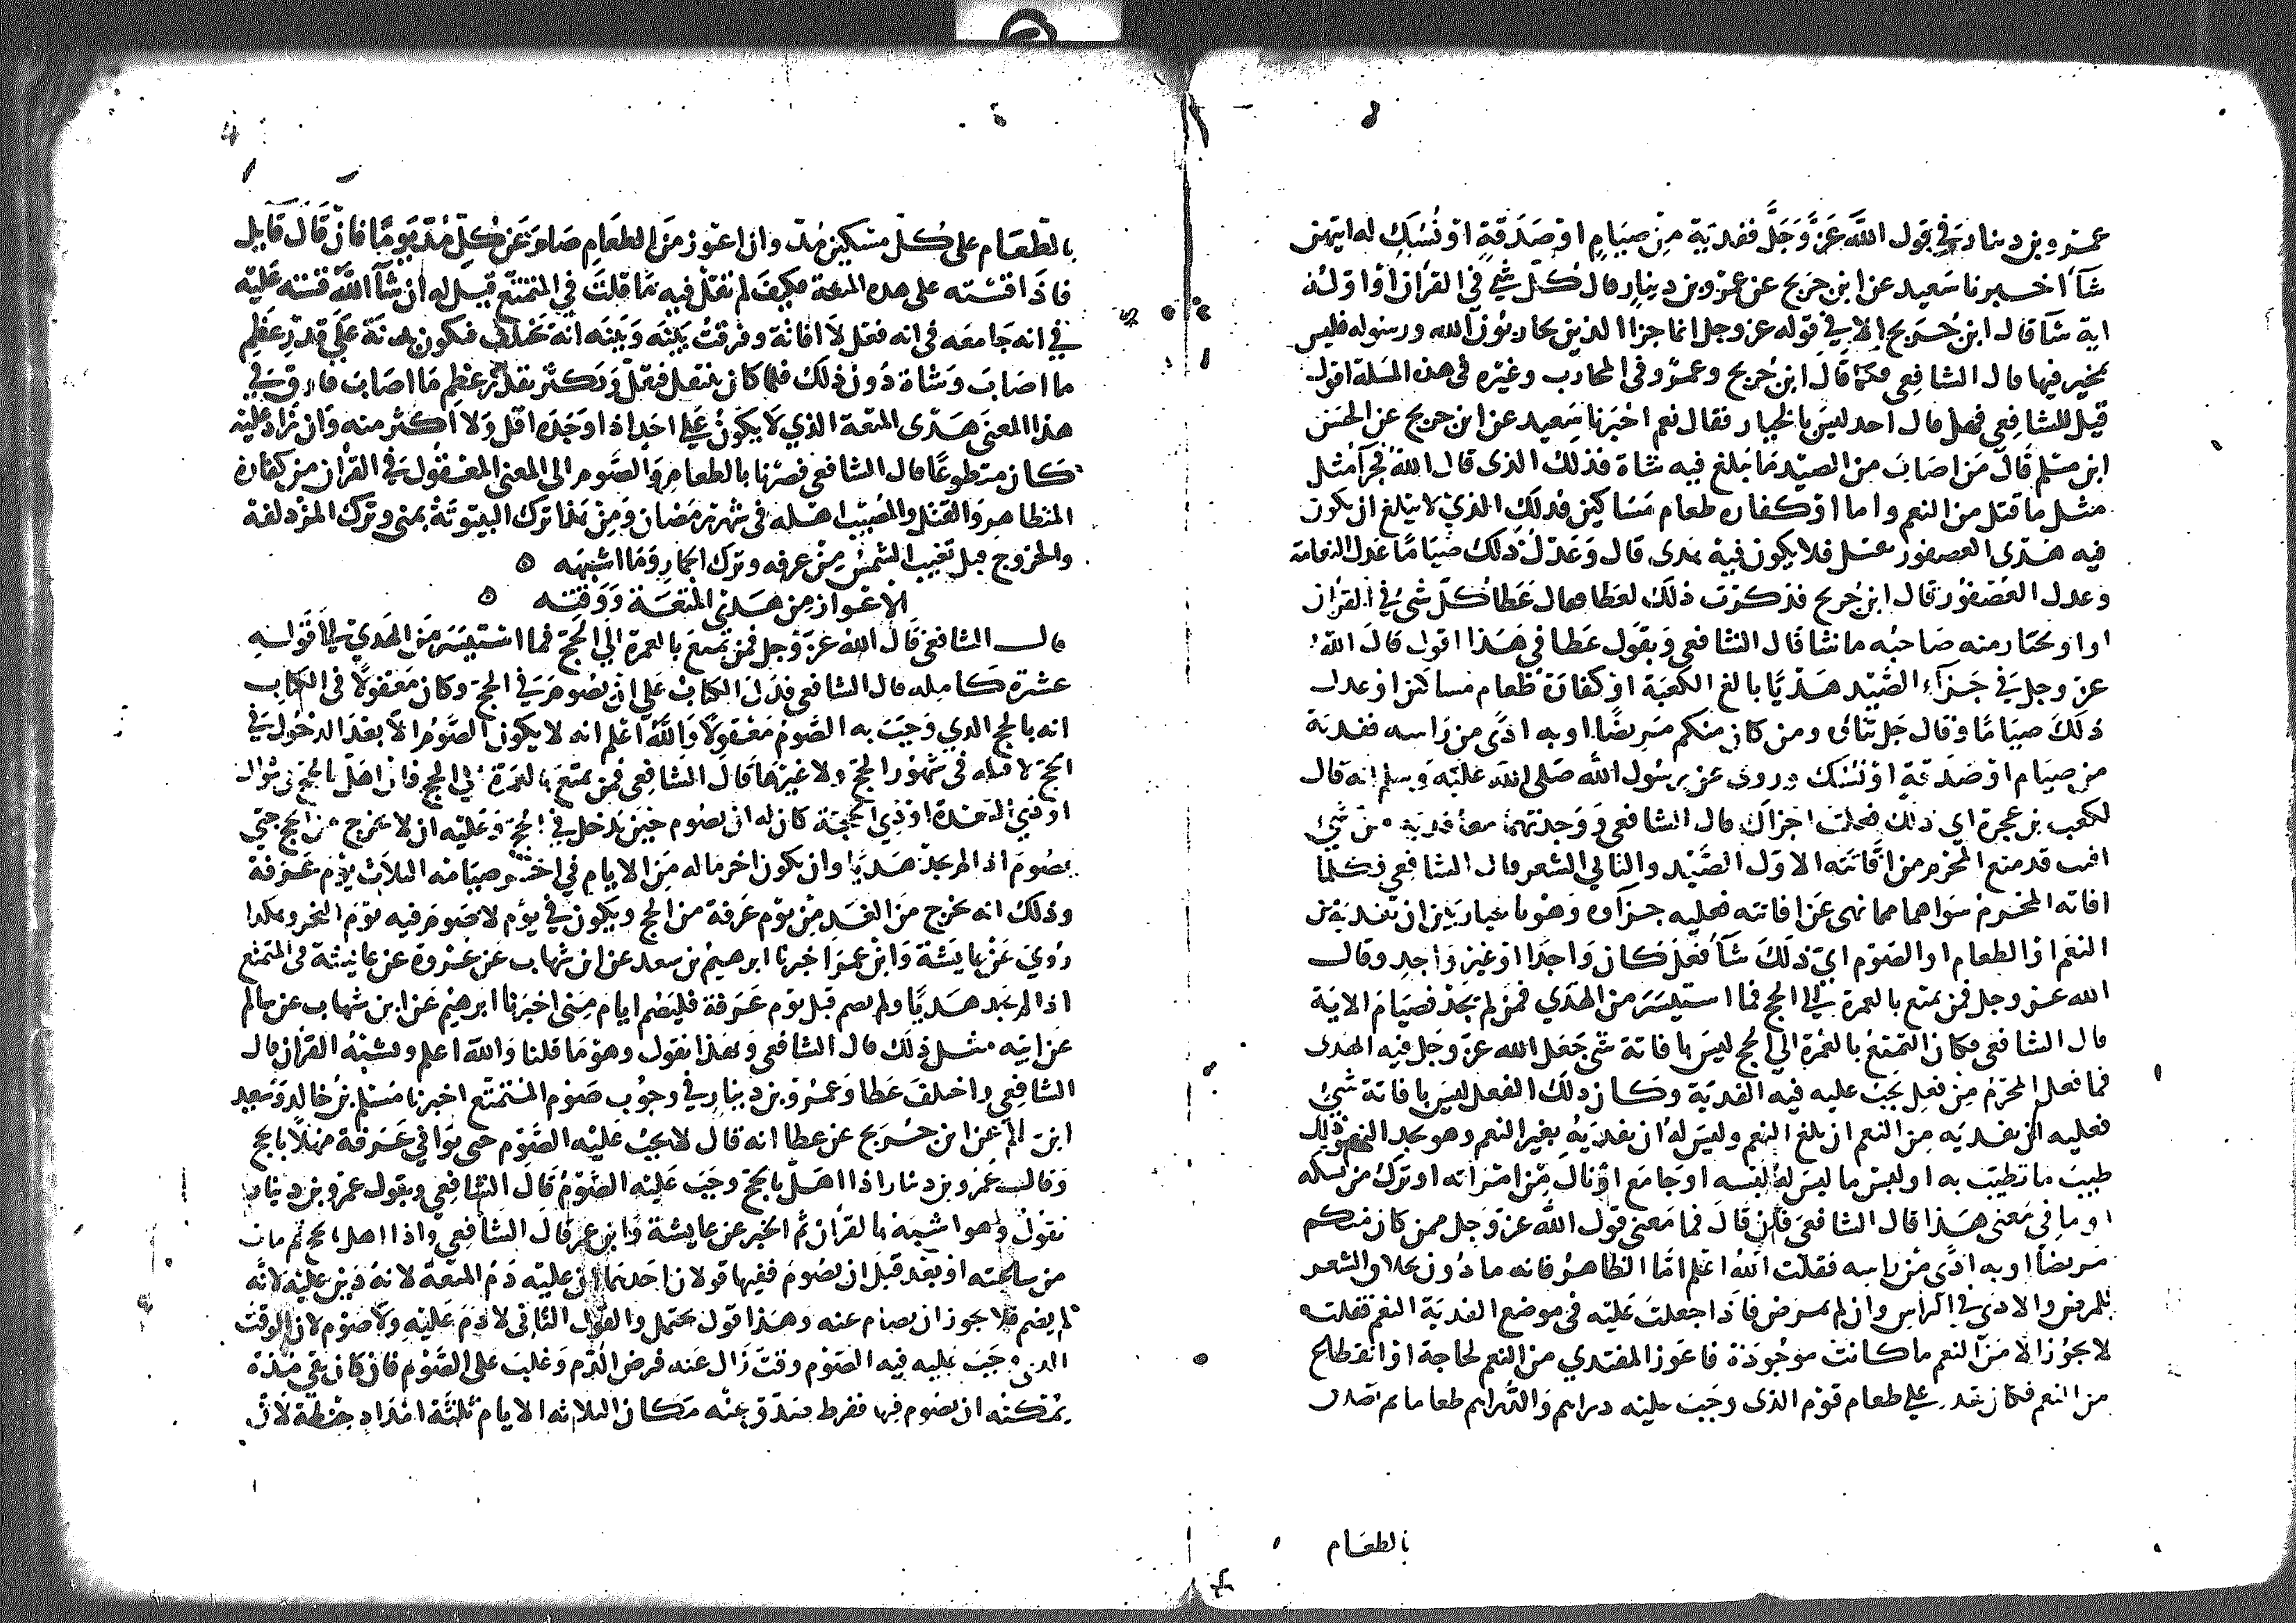 عمرو بن دينار في قول الله عز وجل ففدية من صيام او صدقة او نسك له ايتهن
شآ اخبرنا سعيد عن ابن جريج عن عمرو بن دينار قال كل شي في القران او او له
اية شآ قال ابن جريج الا في قوله عز وجل انما جزا الذين يحاربون الله ورسوله فليس
بمخير فيها قال الشافعي وكما قال ابن جريج وعمرو في المحارب وغيره في هذه المسلة اقول
قيل للشافعي فهل قال احد ليس بالخيار فقال نعم اخبرنا سعيد عن ابن جريج عن الحسن
ابن مسلم قال من اصاب من الصيد ما يبلغ فيه شاة فذلك الذي قال الله فجزآ مثل
مثل ما قتل من النعم واما او كفاره طعام مساكين فذلك الذي لا يبلغ ان يكون
فيه هدي العصفور يقتل فلا يكون فيه هدي قال وعدل ذلك صياما عدل النعامة
وعدل العصفور قال ابن جريج فذكرت ذلك لعطا فقال عطا كل شي في القران
او او يختار منه صاحبه ما شا قال الشافعي وبقول عطا في هذا اقول قال الله
عز وجل في جزآء الصيد هديا بالغ الكعبة او كفارة طعام مساكين او عدل
ذلك صياما وقال جل ثناؤه ومن كان منكم مريضا او به اذى من راسه ففدية
من صيام او صدقة او نسك وروي عن رسول الله صلى الله عليه وسلم انه قال
لكعب بن عجرة اي ذلك فعلت اجزاك قال الشافعي ووجدتهما معا فدية من شي
افيت قد منع المحرم من افاتته الاول الصيد والثاني الشعر قال الشافعي فكلما
افاته المحرم سواهما مما نهي عن افاتته فعليه جزآوه وهو بالخيار بين ان يفديه من
النعم او الطعام او الصوم اي ذلك شآ فعل كان واجدا او غير واجد وقال
الله عز وجل فمن تمتع بالعمرة الى الحج فما استيسر من الهدي فمن لم يجد فصيام الاية
قال الشافعي فكان التمتع بالعمرة الي الحج ليس بافاتة شي جعل الله عز وجل فيه الهدي
فما فعل المحرم من فعل يجب عليه فيه الفدية وكان ذلك الفعل ليس بافاتة شي
فعليه ان يفديه من النعم ان بلغ النعم وليس له ان يفديه بغير النعم وهو يجد النعم وذلك
طيب ما تطيب به او لبس ما ليس له لبسه او جامع او نال من امراته او ترك من نسكه
او ما في معنى هذا قال الشافعي فان قال فما معنى قول الله عز وجل فمن كان منكم
مريضا او به اذى من راسه فقلت الله اعلم اما الظاهر فانه ماذون بحلاق الشعر
للمرض والاذى في الراس وان لم يمرض فاذا جعلت عليه في موضع الفدية النعم فقلت
لا يجوز الا من النعم ما كانت موجودة فاعوز المفتدي من النعم لحاجة او انقطاع
من النعم فكان يقدر على طعام قوم الذي وجب عليه دراهم والدراهم طعاما ثم تصدق
بالطعام
بالطعام على كل مسكين مد وان اعوز من الطعام صام عن كل مد يوما فان قال قايل
فاذا قسته على هدي المتعة فكيف لم تقل فيه ما قلت في المتمتع قيل له ان شآ الله قسته عليه
في انه جامعه في انه فعل لا افاتة وفرقت بينه وبينه انه يختلف فيكون بدنة على قدر عظم
ما اصاب وشاة دون ذلك فلما كان ينتقل فيقل ويكثر بقدر عظم ما اصاب فارق في
هذا المعنى هدي المتعة الذي لا يكون على احد اذا وجده اقل ولا اكثر منه وان زاد عليه
كان متطوعا قال الشافعي فصرنا بالطعام والصوم الى المعنى المعقول في القران من كفارة
المتظاهر والقتل والمصيب اهله في شهر رمضان ومن هذا ترك البيتوتة بمنى وترك المزدلفة
والخروج قبل تغيب الشمس من عرفه وترك الجمار وما اشبهه ه
الاعواز من هدي المتعة ووقته ه
قال الشافعي قال الله عز وجل فمن تمتع بالعمرة الي الحج فما استيسر من الهدي الى قوله
عشرة كاملة قال الشافعي فدل الكتاب على ان يصوم في الحج وكان معقولا في الكتاب
انه بالحج الذي وجب به الصوم معقولا والله اعلم انه لا يكون الصوم الا بعد الدخول في
الحج لا قبله في شهور الحج ولا غيرها قال الشافعي فمن تمتع بالعمرة الي الحج فان اهل بالحج في شوال
او ذي القعدة او ذي الحجة كان له ان يصوم حين يدخل في الحج وعليه ان لا يخرج من الحج حتي
يصوم اذا لم يجد هديا وان يكون اخر ما له من الايام في اخر صيامه الثلاث يوم عرفة
وذلك انه يخرج من الغد من يوم عرفة من الحج ويكون في يوم لا صوم فيه يوم النحر وهكذا
روي عن عايشة وابن عمر اخبرنا ابرهيم بن سعد عن ابن شهاب عن عروة عن عايشة في المتمتع
اذا لم يجد هديا ولم يصم قبل يوم عرفة فليصم ايام منى اخبرنا ابرهيم عن ابن شهاب عن سالم
عن ابيه مثل ذلك قال الشافعي وبهذا نقول وهو ما قلنا والله اعلم ويشبه القران قال
الشافعي واختلف عطا وعمرو بن دينار في وجوب صوم المتمتع اخبرنا مسلم بن خالد وسعيد
ابن سالم عن ابن جريج عن عطا انه قال لا يجب عليه الصوم حتى يوافي عرفة مهلا بالحج
وقال عمرو بن دينار اذا اهل بالحج وجب عليه الصوم قال الشافعي وبقول عمرو بن دينار
نقول وهو اشبه بالقران ثم الخبر عن عايشة وابن عمر قال الشافعي واذا اهل بالحج ثم مات
من ساعته او بعد قبل ان يصوم ففيها قولان احدهما ان عليه دم المتعة لانه دين عليه لانه
لم يصم فلا يجوز ان يصام عنه وهذا قول يحتمل والقول الثاني لا دم عليه ولا صوم لان الوقت
الذي وجب عليه فيه الصوم وقت زال عنه فرض الدم وغلب على الصوم فان كان بقي مدة
يمكنه ان يصوم فيها ففرط تصدق عنه مكان الثلاثه الايام ثلثة امداد حنطة لان